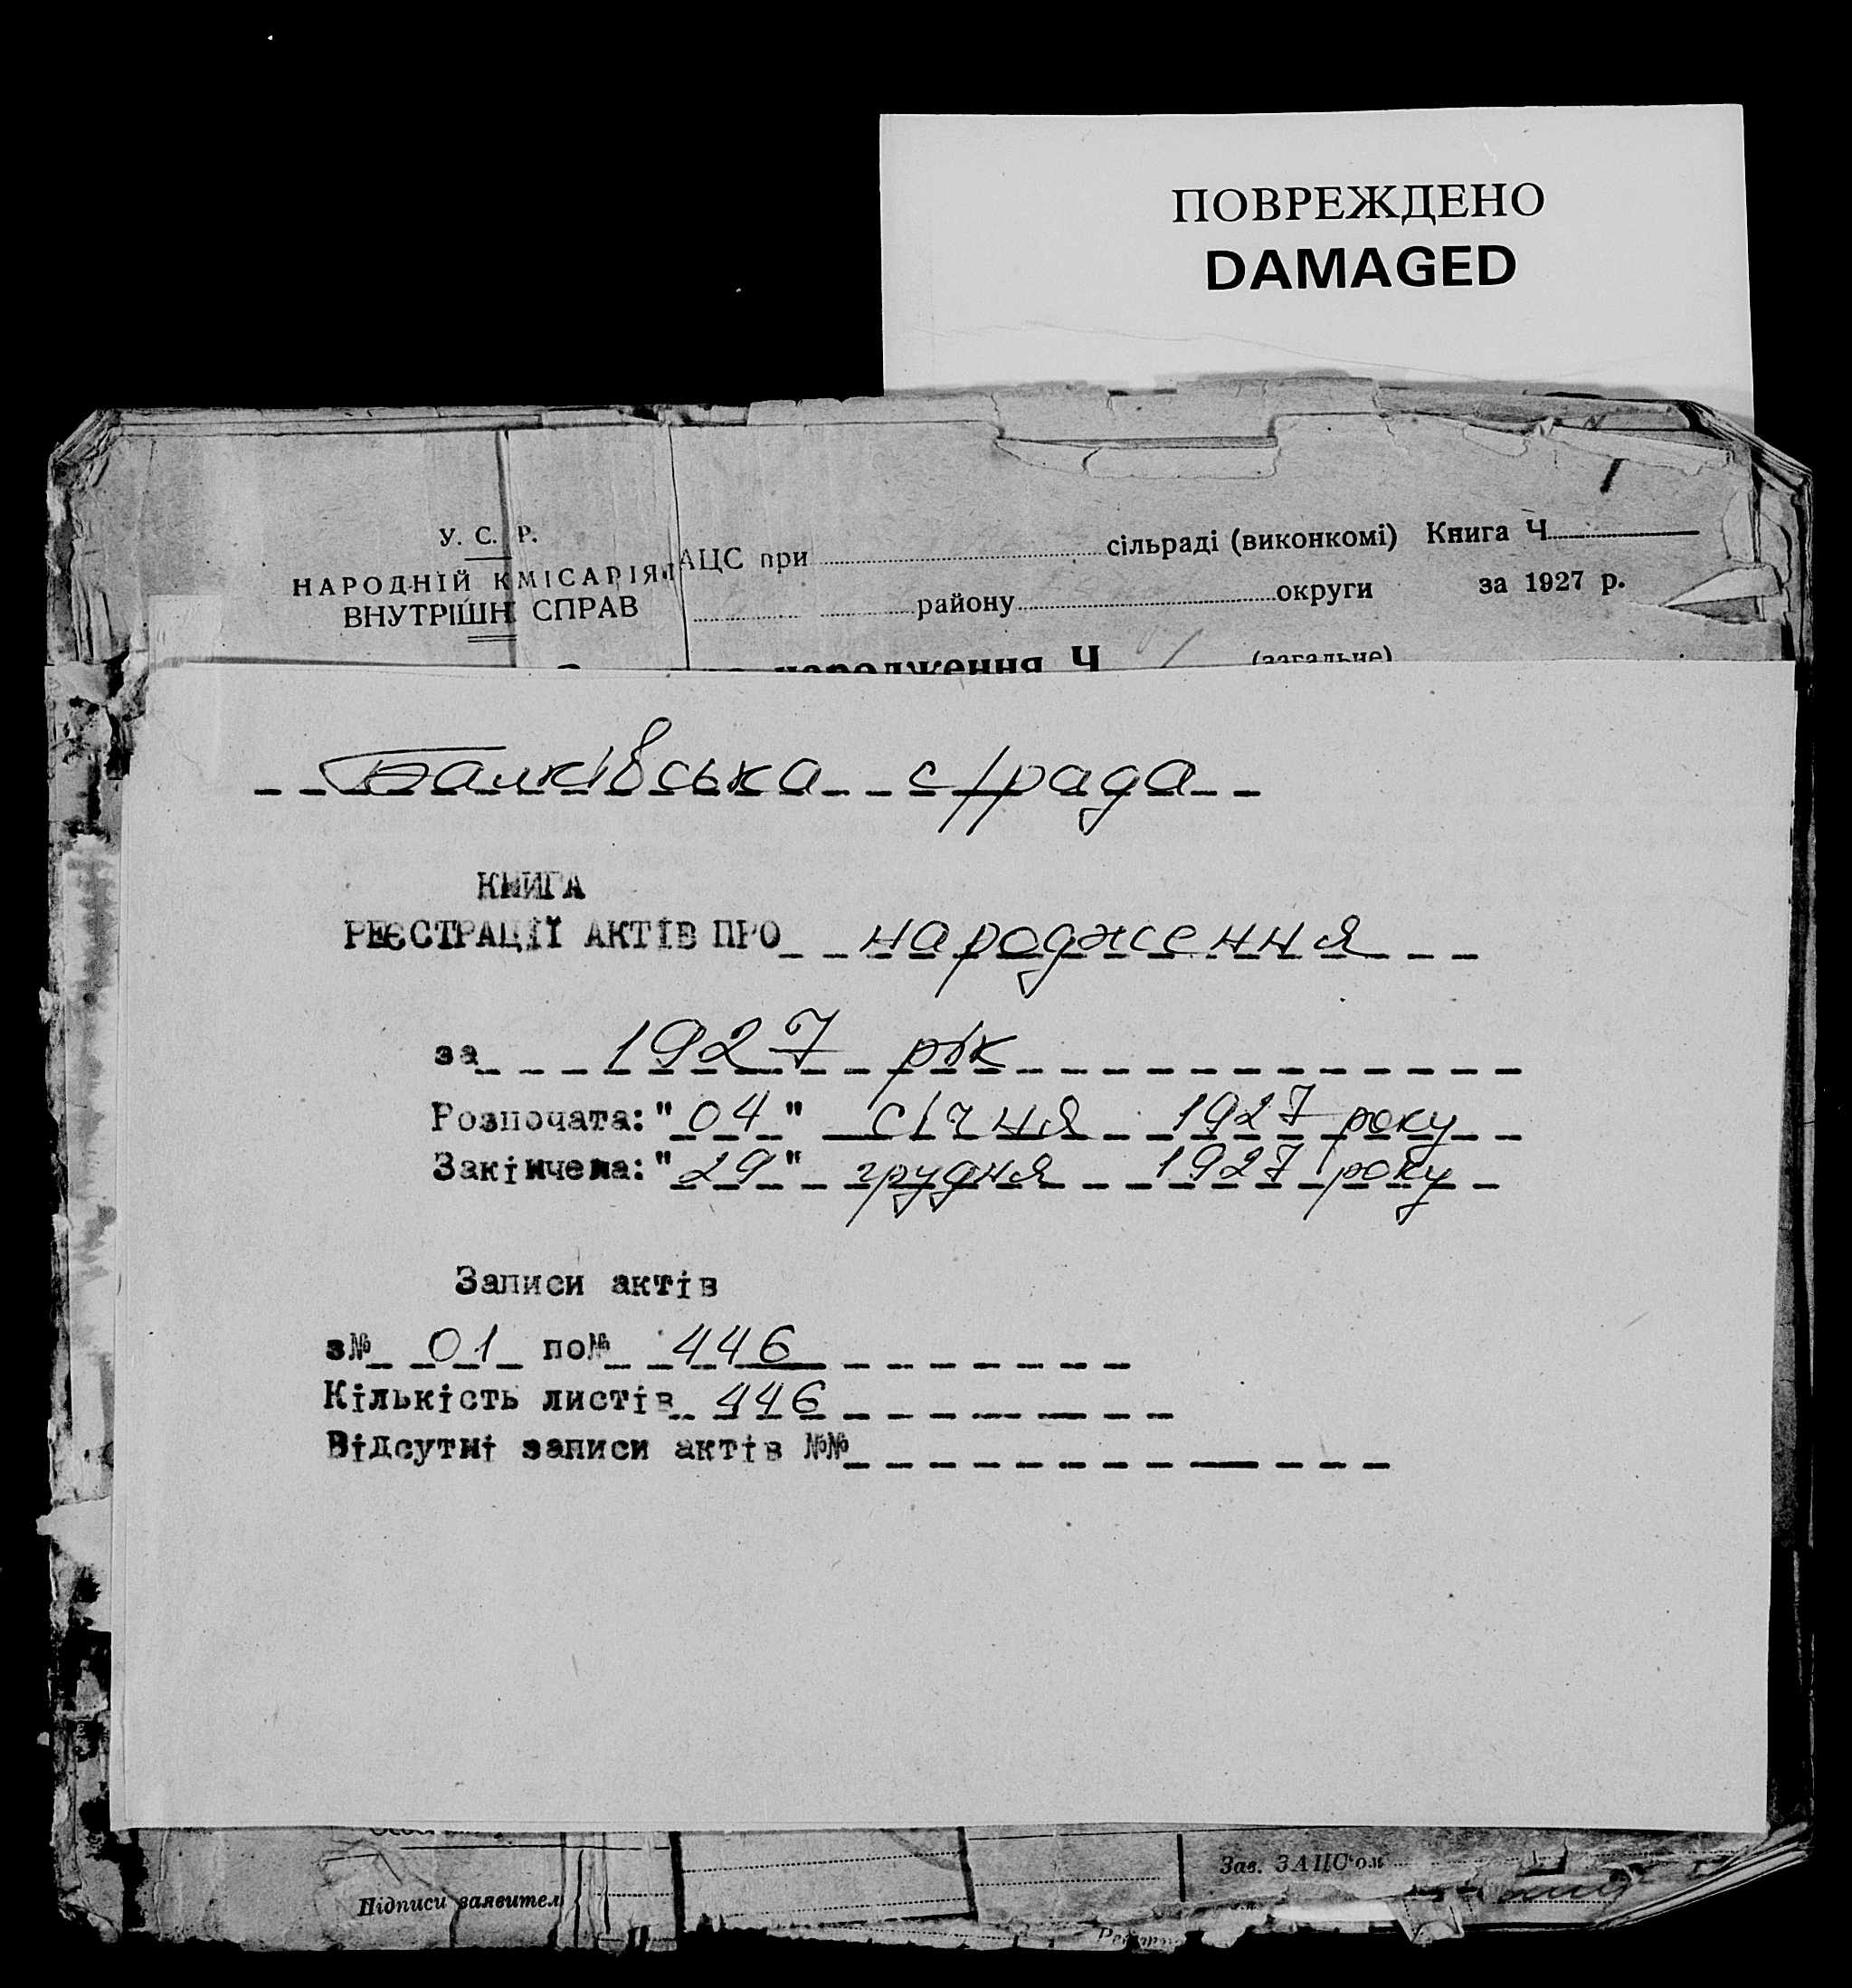 ПОВРЕЖДЕНО
DAMAGED
У. С. Р.
НАРОДНІЙ КМІСАРІЯТ
ВНУТРІШН СПРАВ
АЦС при сільраді (виконкомі) Книга Ч
району округи за 1927 р.
народження Ч (загальне)
Балківська с/рада
КНИГА
РЕЄСТРАЦІЇ АКТІВ ПРО народження
за 1927 рік
Розпочата: "04" січня 1927 року
Закінчена: "29" грудня 1927 року
Записи актів
з№ 01 по№ 446
Кількість листів 446
Відсутні записи актів №№
Підписи заявител
Зав. ЗАЦС'ом